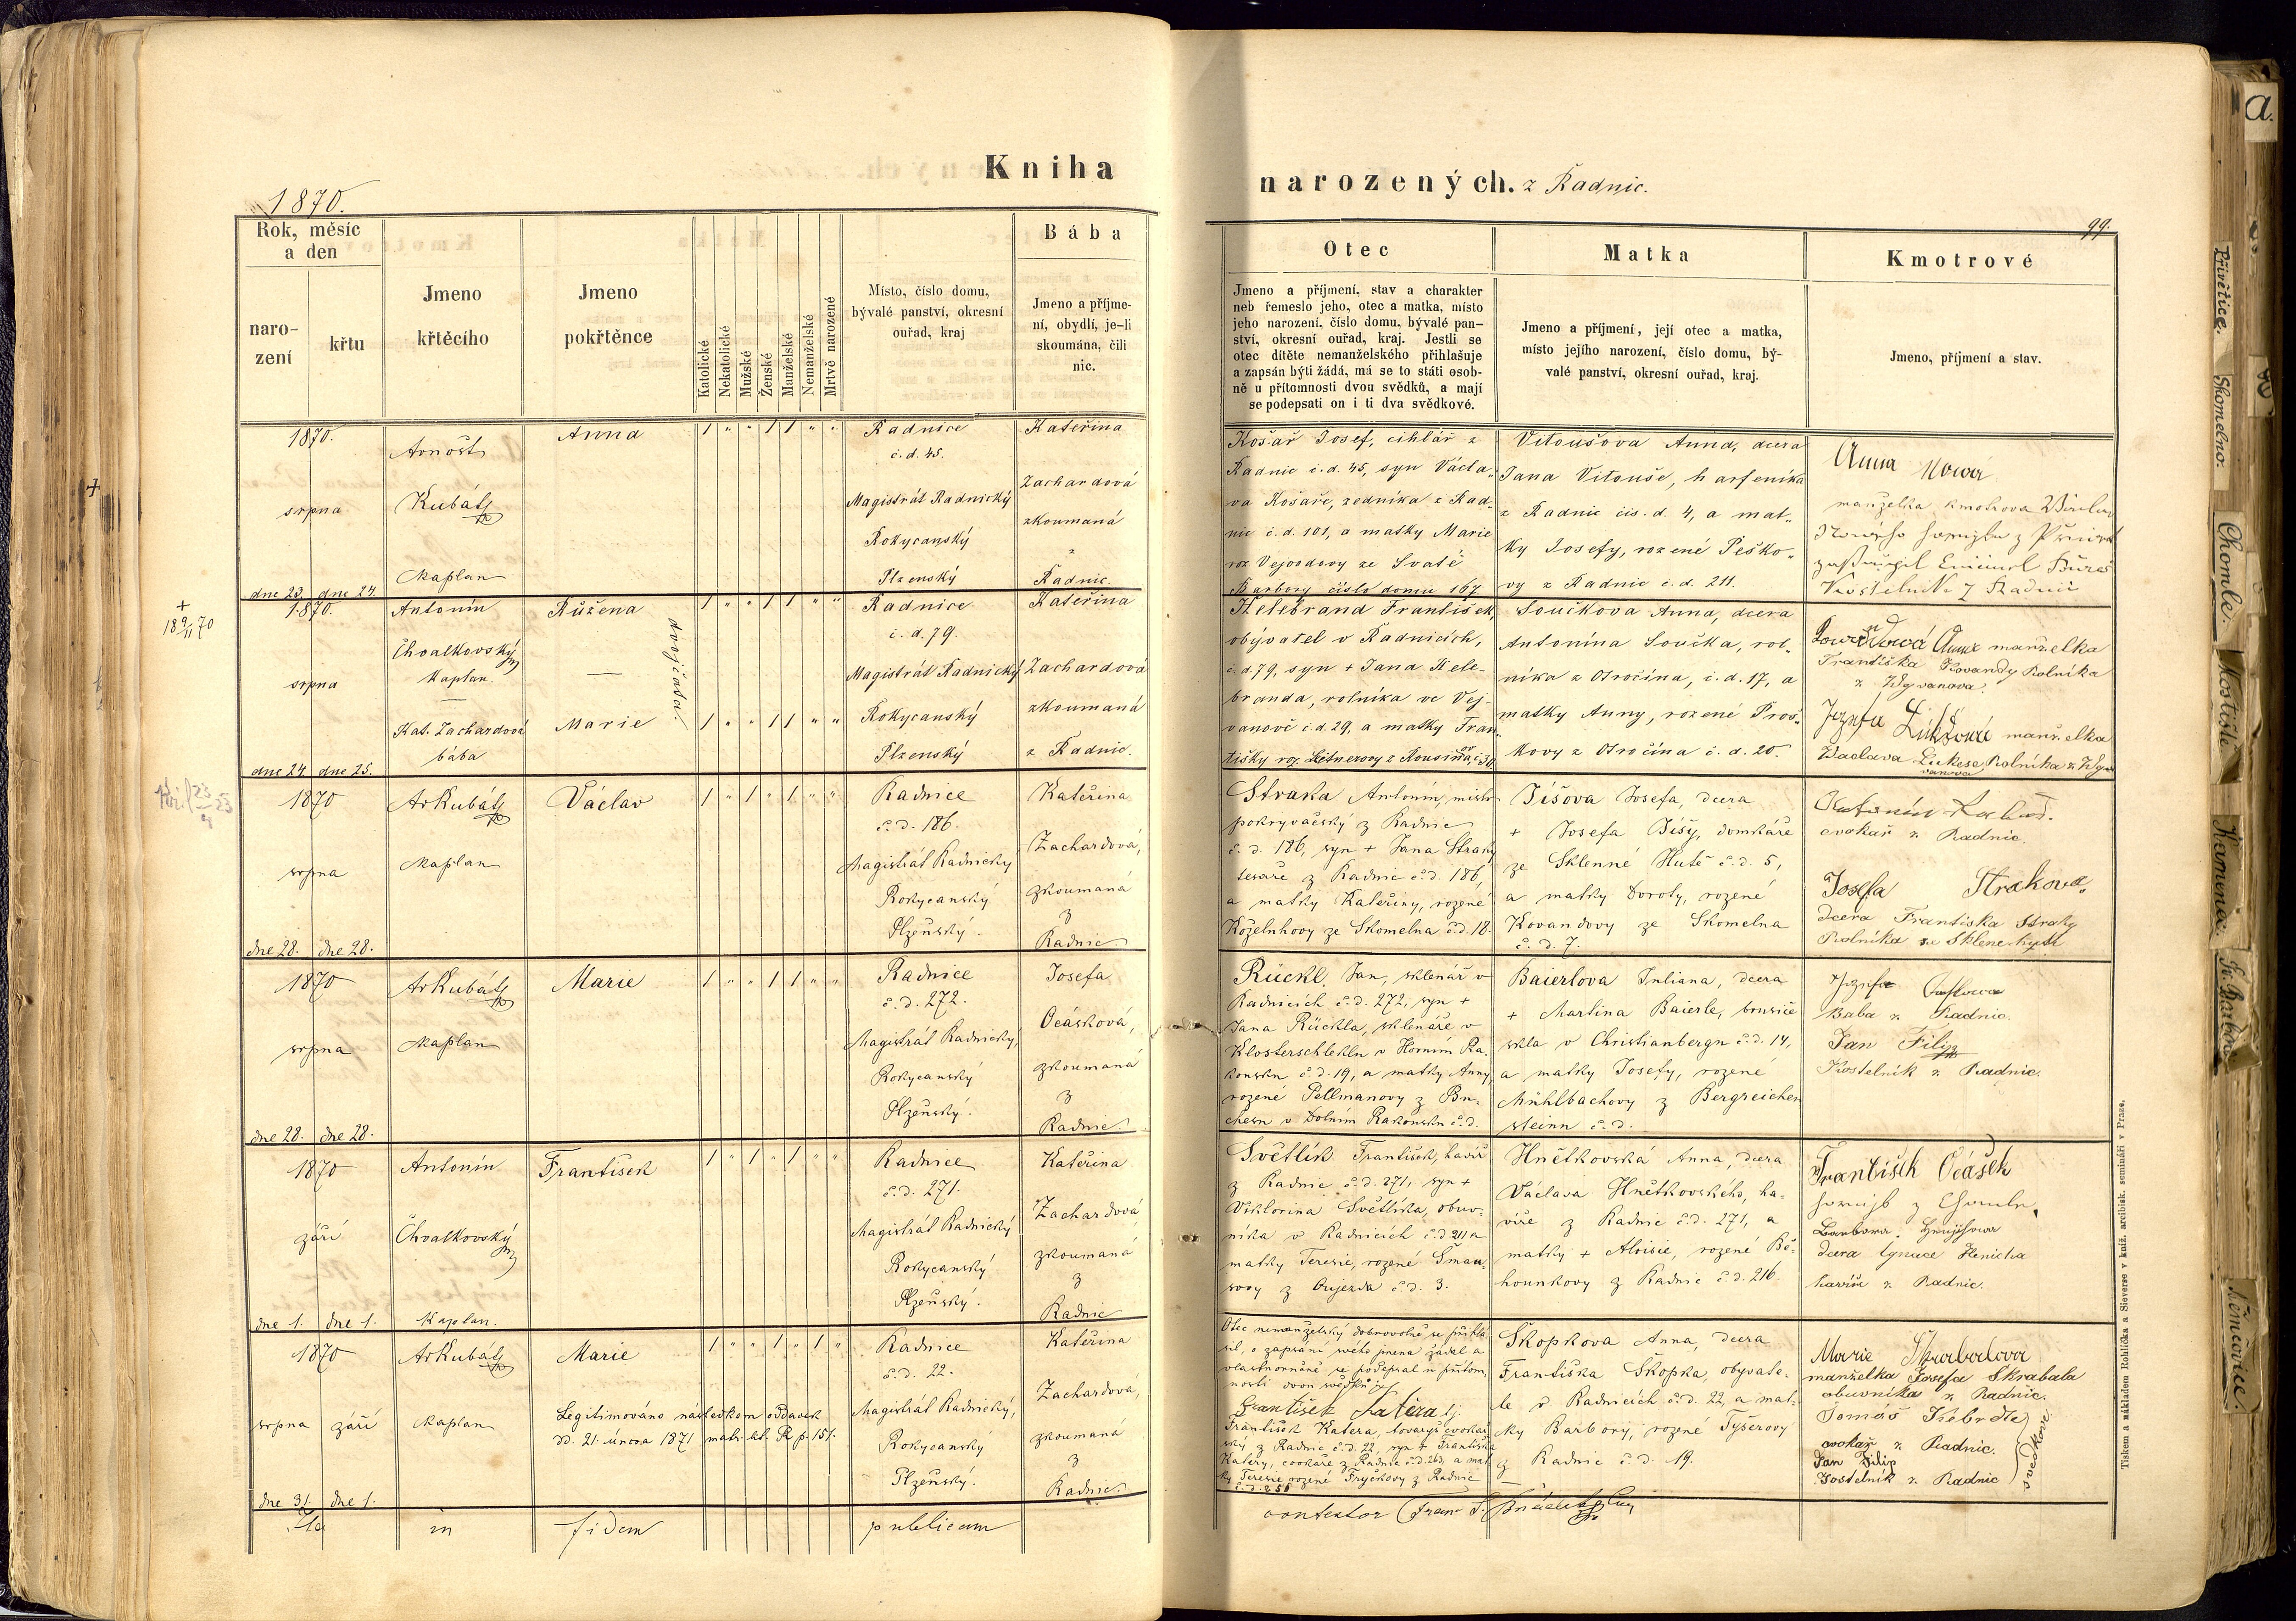 Kniha
narozených. z Radnic.
1870.
99.
Rok, měsíc
a den
naro-
zení
křtu
Jmeno
křtěcího
Jmeno
pokřtěnce
Katolické
Nekatolické
Mužské
Ženské
Manželské
Nemanželské
Mrtvě narozené
Místo, číslo domu,
bývalé panství, okresní
ouřad, kraj
Bába
Jmeno a příjme-
ní, obydlí, je-li
skoumána, čili
nic.
Otec
Jmeno a příjmení, stav a charakter
neb řemeslo jeho, otec a matka, místo
jeho narození, číslo domu, bývalé pan-
ství, okresní ouřad, kraj. Jestli se
otec dítěte nemanželského přihlašuje
a zapsán býti žádá, má se to státi osob-
ně u přítomnosti dvou svědků, a mají
se podepsati on i ti dva svědkové.
Matka
Jmeno a příjmení, její otec a matka,
místo jejího narození, číslo domu, bý-
valé panství, okresní ouřad, kraj.
Kmotrové
Jmeno, příjmení a stav.
1870.
srpna
dne 23. dne 24.
Arnošt
Kubát
kaplan
Anna
1 " " 1 1 " "
Radnice
č. d. 45.
Magistrát Radnický
Rokycanský
Plzenský
Kateřina
Zachardová
zkoumaná
z
Radnic.
Košař Josef, cihlář z
Radnic č. d. 45, syn Václa-
va Košaře, zedníka z Rad-
nic č. d. 101, a matky Marie
roz. Vejvodovy ze Svaté
Barbory číslo domu 167
Vitoušova Anna, dcera
Jana Vitouše, harfeníka
z Radnic čís. d. 4, a mat-
ky Josefy, rozené Peško-
vy z Radnic č. d. 211.
Anna Nowá
manželka kmotrova
1870.
srpna
dne 24. dne 25.
Antonín
Chvalkovský
kaplan.
Kat. Zachardová
bába
Růžena
—
Marie
dvojčata.
1 " " 1 1 " "
1 " " 1 1 " "
Radnice
č. d. 79.
Magistrát Radnický
Rokycanský
Plzenský
Kateřina
Zachardová
zkoumaná
z Radnic.
Helebrand František,
obývatel v Radnicích,
č. d. 79, syn + Jana Hele-
branda, rolníka ve Vej-
vanově č. d. 29, a matky Fran-
tišky roz.
Součkova Anna, dcera
Antonína Součka, rol-
níka z Otročína, č. d. 17, a
matky Anny, rozené Proš-
kovy z Otročína č. d. 20.
Anna manželka
Františka Kovandy Rolníka
z Wejvanova.
Jozefa manželka
Waclava Lukese Rolníka z Wej
vanova
1870
srpna
dne 28. dne 28.
Ar Kubát
kaplan
Václav
1 " 1 " 1 " "
Radnice
č. d. 186.
Magistrát Radnický
Rokycanský
Plzeňský.
Kateřina
Zachardová,
zkoumaná
z
Radnic
Straka Antonín, mistr
pokryvačský z Radnic
č. d. 186, syn + Jana Straky
tesaře z Radnic č. d. 186,
a matky Kateřiny, rozené
Koželuhovy ze Skomelna č. d. 18.
Tišova Josefa, dcera
+ Josefa Tišy, domkáře
ze Sklenné Hutě č. d. 5,
a matky Doroty, rozené
Kovandovy ze Skomelna
č. d. 7.
cvokař z Radnic.
Josefa Strakova
dcera Františka Straky
Rolníka ze Sklene
1870
srpna
dne 28. dne 28.
Ar Kubát
kaplan
Marie
1 " " 1 1 " "
Radnice
č. d. 272.
Magistrát Radnický,
Rokycanský
Plzeňský.
Josefa
Ocásková,
zkoumaná
z
Radnic.
Rückl Jan, sklenář v
Radnicích č. d. 272, syn +
Jana Rückla, skláře v
Klosterschlekln v Horním Ra-
kousku č. d. 19, a matky Anny,
rozené Pellmanovy z Bu-
chesn v Dolním Rakousku č. d.
Baierlova Juliana, dcera
+ Martina Baierle, brusiče
skla v Christianbergu č. d. 14,
a matky Josefy, rozené
Mühlbachovy z Bergreichen
steinn č. d.
Baba z Radnic.
Jan Filip
Kostelník z Radnic.
1870
září
dne 1. dne 1.
Antonín
Chvalkovský
Kaplan.
František
1 " 1 " 1 " "
Radnice
č. d. 271.
Magistrát Radnický
Rokycanský
Plzeňský.
Kateřina
Zachardová
zkoumaná
z
Radnic
Světlík František, havíř
z Radnic č. d. 271, syn +
Viktorina Světlíka, obuv-
níka v Radnicích č. d. 211 a
matky Teresie, rozené Šmau-
sovy z Oujezda č. d. 3.
Hnětkovská Anna, dcera
Václava Hnětkovského, ha-
víře z Radnic č. d. 271, a
matky + Aloisie, rozené Bě-
hounkovy z Radnic č. d. 216.
František Ocásek
Barbora
dcera Ignace Henicha
havíře z Radnic.
1870
srpna září
dne 31. dne 1.
Ar Kubát
kaplan
Marie
Legitimováno následkem oddavek
dd. 21. února 1871 matr. kt. R p. 151.
1 " " 1 " 1 "
Radnice
č. d. 22.
Magistrát Radnický,
Rokycanský
Plzeňský.
Kateřina
Zachardová,
zkoumaná
z
Radnic.
Otec nemanželský dobrovolně se přihlá-
sil, o zapsání svého jmena žádal a
vlastnoručně se podepsal u přítom-
nosti dvou svědků:
František Katěra
František Katera, tovaryš cvokař
ský z Radnic č. d. 22, syn + Františka
Katěry, cvokaře z Radnic č. d. 263, a mat
ky Teresie rozené Fryčkovy z Radnic
č. d. 258
Škopkova Anna, dcera
Františka Škopka, obyvate-
le v Radnicích č. d. 22, a mat-
ky Barbory, rozené Tyšerovy
z Radnic č. d. 19.
Marie Skrabalova
manželka Josefa Skrabala
obuvníka z Radnic.
Tomáš Kebrdle
cvokař z Radnic.
Jan Filip
Kostelník z Radnic
svědkové
Ita in fidem publicam
contestor Fran S.
Tiskem a nákladem Rohlíčka a Sieverse v kníž. arcibisk. semináři v Praze.
a.
Přívětice.
Skomelno.
Chomle.
Kamenná
Sv. Barbora
Němčovice.